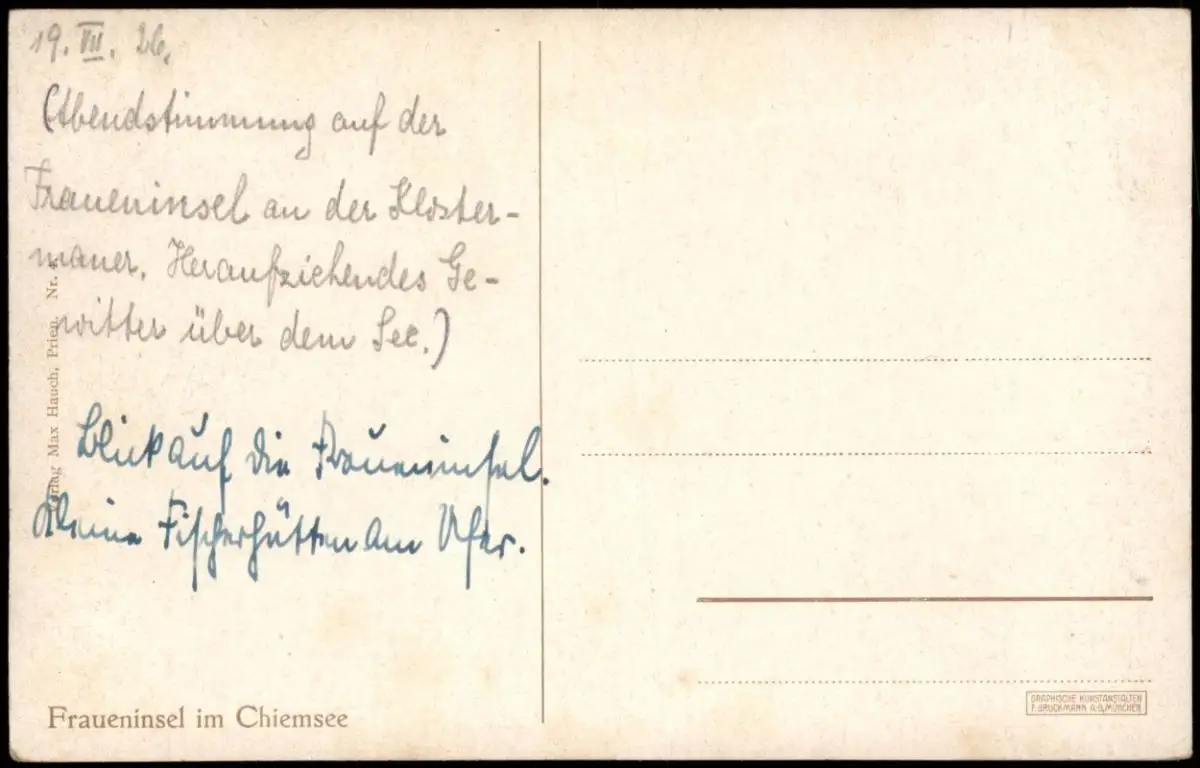 19. VII. 26.
(Abendstimmung auf der
Fraueninsel an der Kloster-
mauer. Heraufziehendes Ge-
witter über dem See.)
Blick auf die Fraueninsel.
Kleine Fischerhütten am Ufer.
Verlag Max Hauch, Prien. Nr.
Fraueninsel im Chiemsee
GRAPHISCHE KUNSTANSTALTEN
F. BRUCKMANN A.G., MÜNCHEN